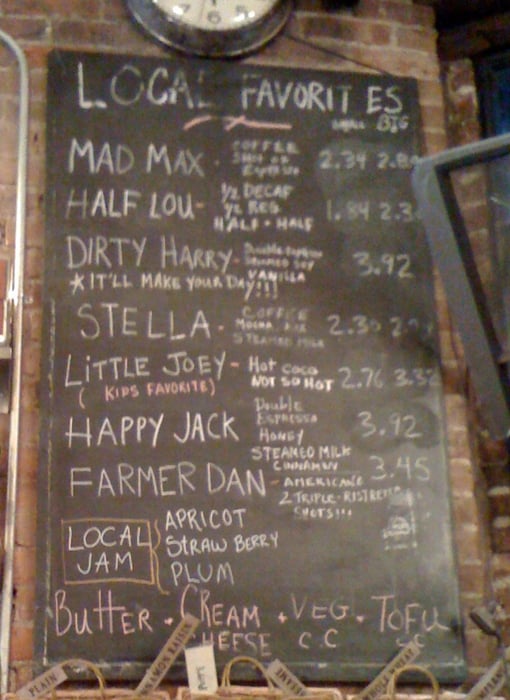 LOCAL FAVORITES
BIG
MAD MAX - COFFEE SHOT OF Espresso 2.34
HALF LOU - 1/2 DECAF 1/2 REG HALF - HALF 1.84
DIRTY HARRY - Double VANILLA 3.92
*IT'LL MAKE YOUR DAY!!!
STELLA - COFFEE MOCHA STEAMED MILK 2.30
LITTLE JOEY - Hot coco NOT SO HOT 2.76 3.32
( KIDS FAVORITE)
HAPPY JACK Double ESPRESSO HONEY STEAMED MILK CINNAMON 3.92
FARMER DAN - AMERICANO 2 TRIPLE-RISTRETTO SHOTS!!! 3.45
LOCAL JAM
APRICOT
STRAWBERRY
PLUM
BUTTER . CREAM CHEESE . VEG. C.C . TOFU
PLAIN